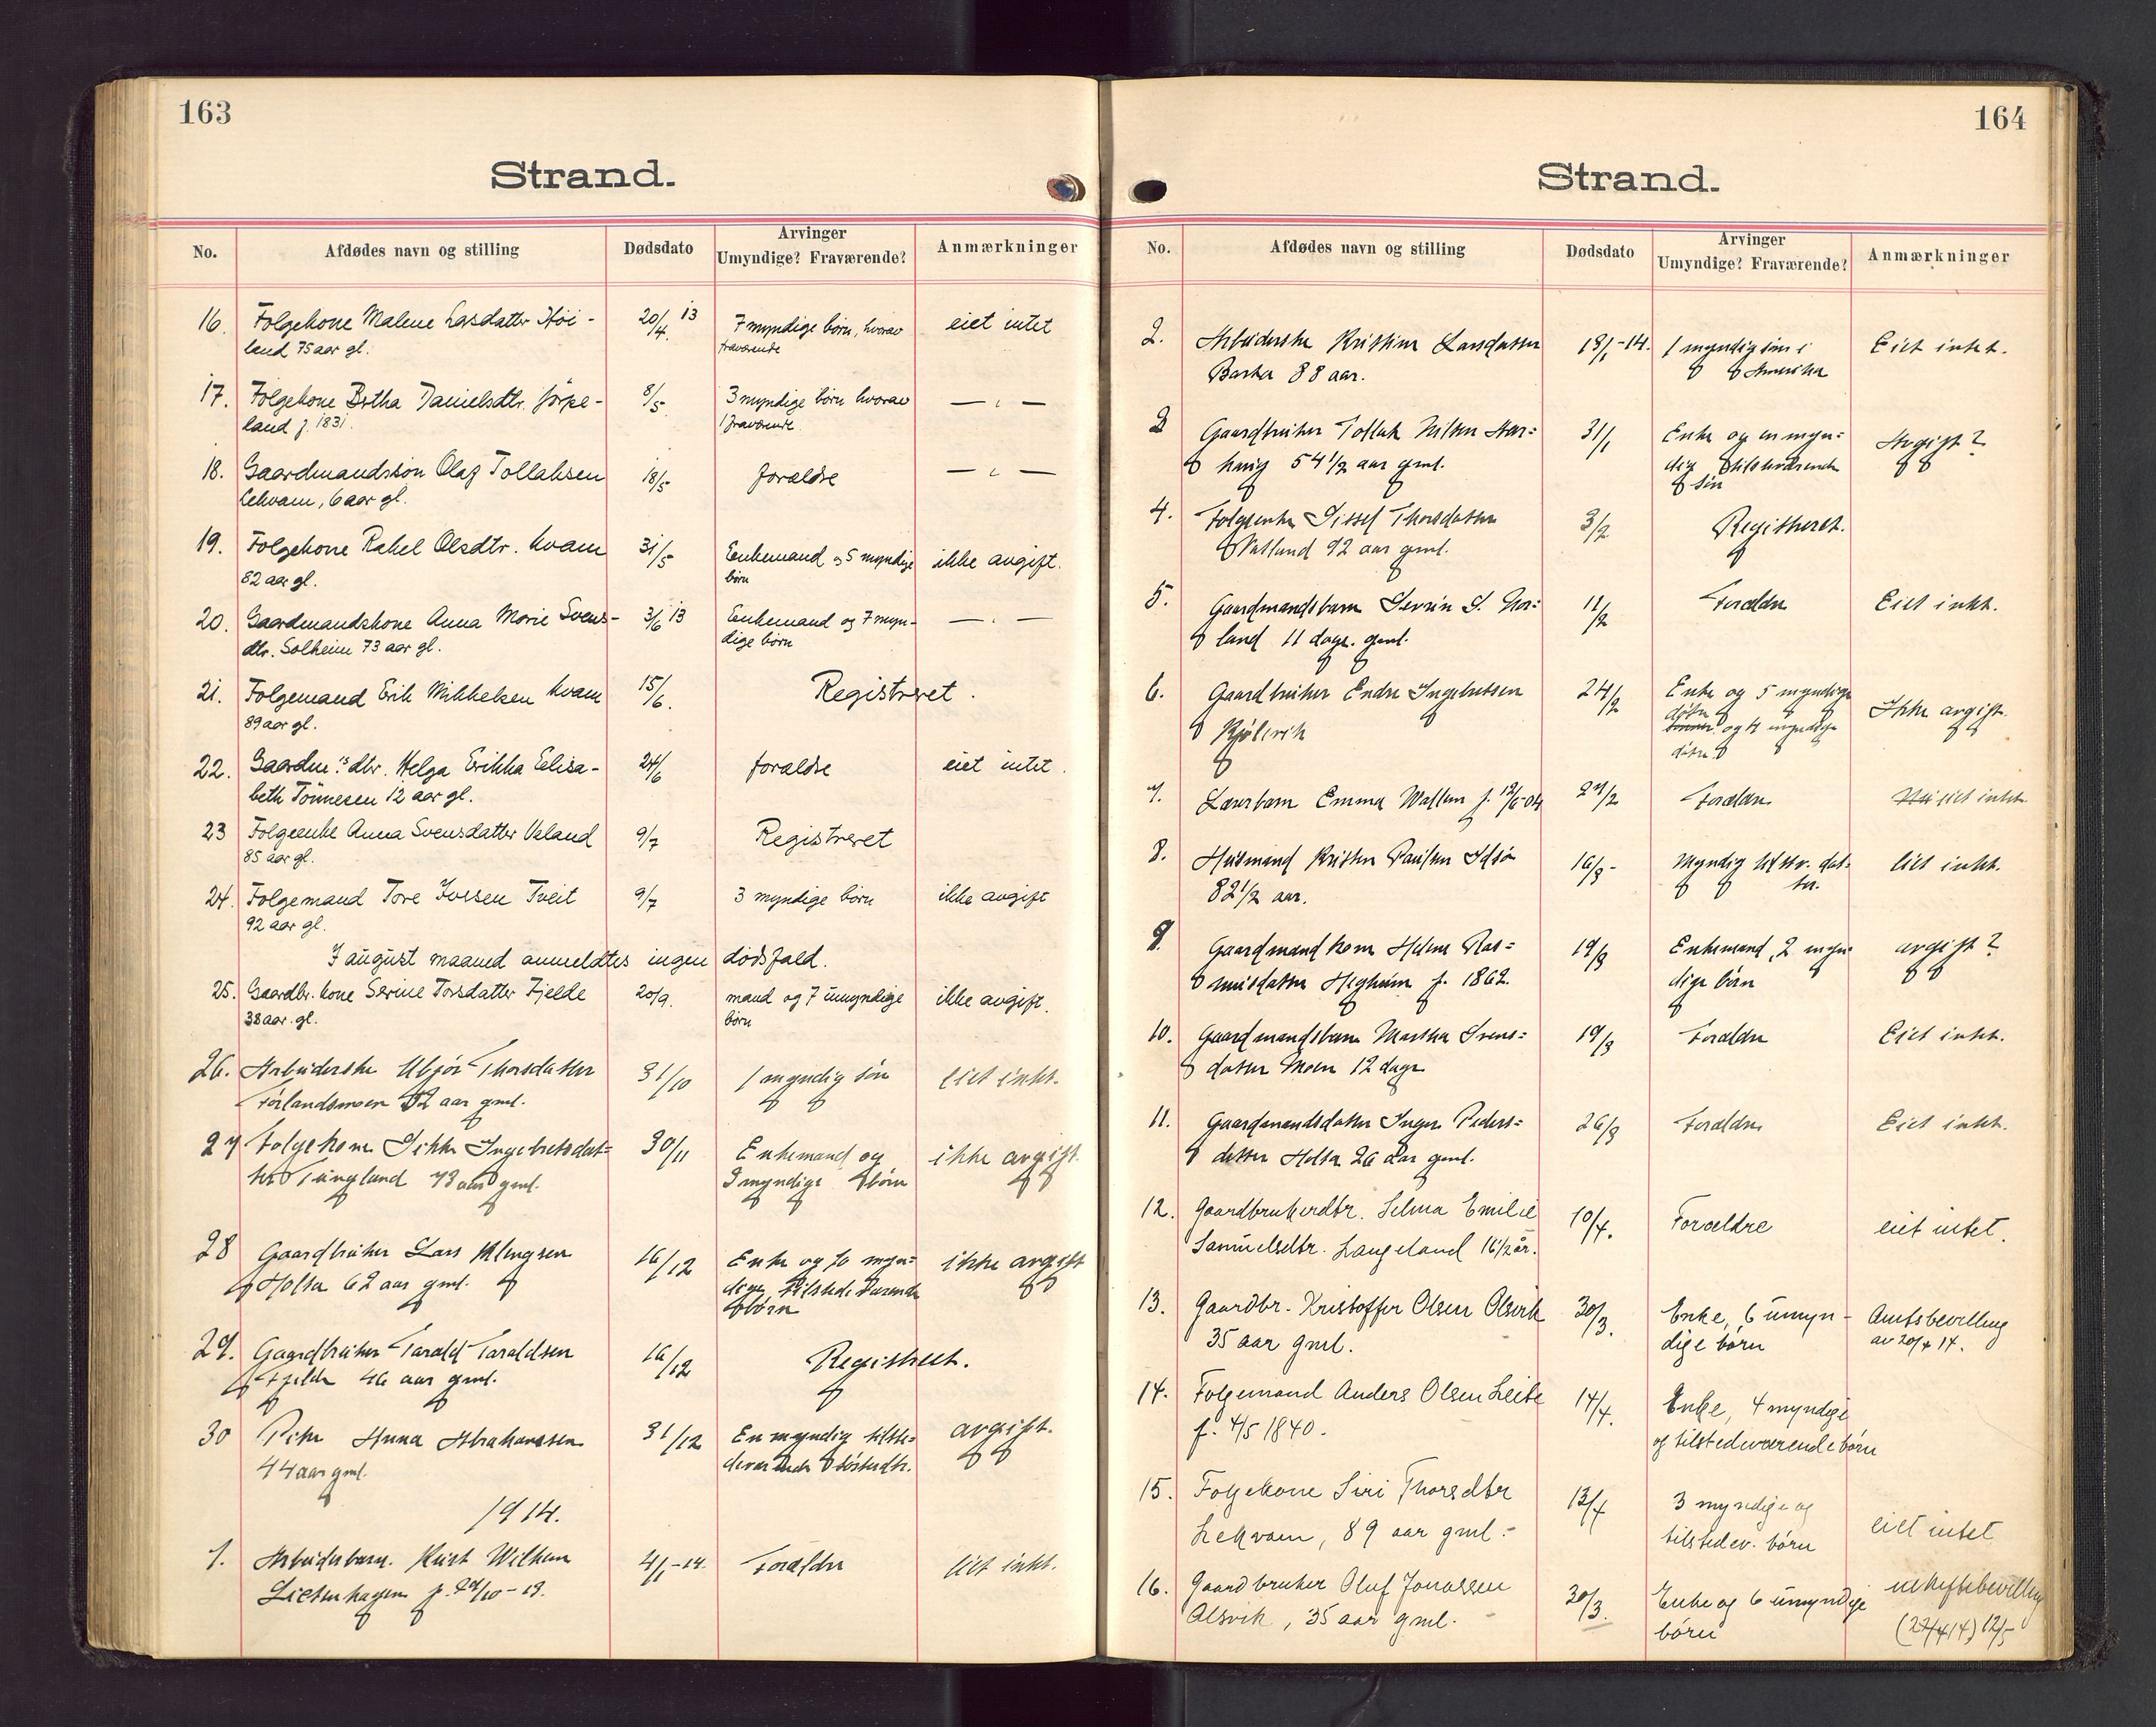 163
Strand.
No. Afdødes navn og stilling Dødsdato Arvinger Umyndige? Fraværende? Anmærkninger
16. Folgekone Malene Larsdatter Høi- 20/4. 13 7 myndige børn, hvorav eiet intet
land 75 aar gl. fraværende
17. Folgekone Brtha Danielsdtr. Jørpe- 8/5 3 myndige børn hvorav — " —
land f. 1831. 1 fraværende.
18. Gaardmandssøn Olaf Tollaksen 18/5 forældre — " —
Lekvam, 6 aar gl.
19. Folgekone Rakel Olsdtr. Kvam 31/5 Enkemand og 5 myndige ikke avgift.
82 aar gl. børn
20. Gaardmandskone Anna Marie Svens- 3/6 13 Enkemand og 7 myn- — " —
dtr. Solheim 73 aar gl. dige børn
21. Folgemand Erik Mikkelsen Kvam 15/6. Registreret.
89 aar gl.
22. Gaardm.s dtr. Helga Erikka Elisa- 24/6 forældre eiet intet.
beth Tønnesen 12 aar gl.
23 Folgeenke Anna Svensdatter Valand 9/7 Registreret
85 aar gl.
24. Folgemand Tore Iversen Tveit 9/7 3 myndige børn ikke avgift
92 aar gl.
I august maaned anmeldtes ingen dødsfald.
25. Gaardbr. kone Serine Torsdatter Fjelde 20/9. mand og 7 umyndige ikke avgift.
38 aar. gl. børn
26. Arbeiderske Thorsdatter 31/10 1 myndig søn Eiet intet.
Førlandsmoen aar gml.
27 Folgekone Sikke Ingebretsdat= 30/11 Enkemand og ikke avgift.
ter Tungland 73 aar gml. 3 myndige børn
28 Gaardbruker Lars Klingsen 16/12 Enke og 10 myn= ikke avgift
Holta 62 aar gml. dige, tilstedeværende
børn
29. Gaardbruker Tarald Taraldsen 16/12 Registreret.
Fjelde 46 aar gml.
30 Anna Abrahamsen 31/12 En myndig tilste= avgift.
44 aar gml. deværende søsterdtr.
1914.
1. Arbeiderbarn. Kurt Wilhem 4/1-14. Forældre Eiet intet.
f. 29/10-13.
164
Strand.
No. Afdødes navn og stilling Dødsdato Arvinger Umyndige? Fraværende? Anmærkninger
2. Arbeiderske Kristine Larsdatter 18/1-14. 1 myndig søn i Eiet intet.
Barka 88 aar. Amerika
3 Gaardbruker Tollak Nilsen Hau= 31/1 Enke og en myn= Avgift?
54 1/2 aar gml. dig tilstedeværende
søn
4. Folgeenke Sissel Thorsdatter 3/2 Registreret.
Vatland 92 aar gml.
5. Gaardmandsbarn Sevrin S. Nor= 11/2 Forældre Eiet intet.
land 11 dage. gml.
6. Gaardbruker Endre Ingebretsen 24/2 Enke og 5 myndige Ikke avgift.
Kjølevik døtre og 4 myndige
døtre
7. Lærerbarn Emma Wallem f. 12/5-04 27/2 Forældre eiet intet
8. Husmand Kristen Paulsen Idsø 16/3- Myndig tilstv. dat= Eiet intet.
82 1/2 aar. ter.
9. Gaardmandkone Helene Ras= 19/3 Enkemand, 2 myn= avgift?
musdatter Hegheim f. 1862. dige børn
10. Gaardmandsbarn Martha Svens= 19/3 Forældre Eiet intet.
datter Moen 12 dage
11. Gaardmandsdatter Inger Peders= 26/3 Forældre Eiet intet.
datter Holta 26 aar gml.
12. Gaardbrukerdtr. Selma Emilie 10/4. Forældre eiet intet.
Samuelsdtr. Langeland 16 1/2 år.
13. Gaardbr. Kristoffer Olsen Olsvik 30/3. Enke, 6 umyn- Amtsbevilling
35 aar gml. dige børn av 20/4 14.
14. Folgemand Anders Olsen Leite 14/4. Enke, 4 myndige
f. 4/5 1840. og tilstedeværende børn
15. Folgekone Siri Thorsdtr 13/4 3 myndige og
Lekvam, 89 aar gml.- tilstedev. børn eiet intet
16. Gaardbruker Oluf Jonassen 30/3. Enke og 6 umyndige uskiftebevilling
Alsvik, 35 aar gml. børn (27/4 14) 12/5